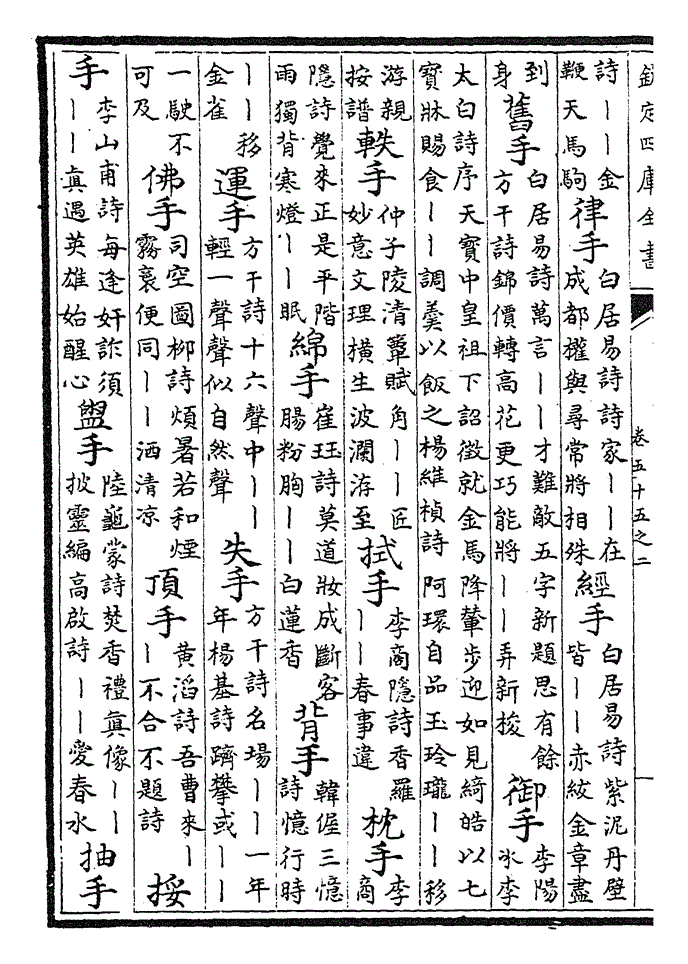 欽定四庫全書 卷五十五之二
詩丨丨金鞭天馬駒 律手 白居易詩詩家丨丨在成都權與尋常將相殊 經手 白居易詩紫泥丹壁皆丨丨赤紱金章盡
到身 舊手 白居易詩萬言丨丨才難敵五字新題思有餘方干詩錦價轉高花更巧能將丨丨弄新梭 御手 李陽冰李
太白詩序天寳中皇祖下詔徵就金馬降輦步迎如見綺皓以七寳牀賜食丨丨調羹以飯之楊維楨詩阿環自品玉玲瓏丨丨移
游親按譜 軼手 仲子陵清簟賦角丨丨匠妙意文理橫生波瀾洊至 拭手 李商隱詩香羅丨丨春事違 枕手 李商
隱詩覺來正是平階雨獨背寒燈丨丨眠 綿手 崔珏詩莫道妝成斷客腸粉胸丨丨白蓮香 背手 韓偓三憶詩憶行時
丨丨移金雀 運手 方干詩十六聲中丨丨輕一聲聲似自然聲 失手 方干詩名場丨丨一年年楊基詩躋攀或丨丨
一駛不可及 佛手 司空圖柳詩煩暑若和煙霧裛便同丨丨洒清凉 頂手 黄滔詩吾曹來丨丨不合不題詩 挼
手 李山甫詩每逢奸詐須丨丨真遇英雄始醒心 盥手 陸龜蒙詩焚香禮真像丨丨披靈編高啟詩丨丨愛春水 抽手